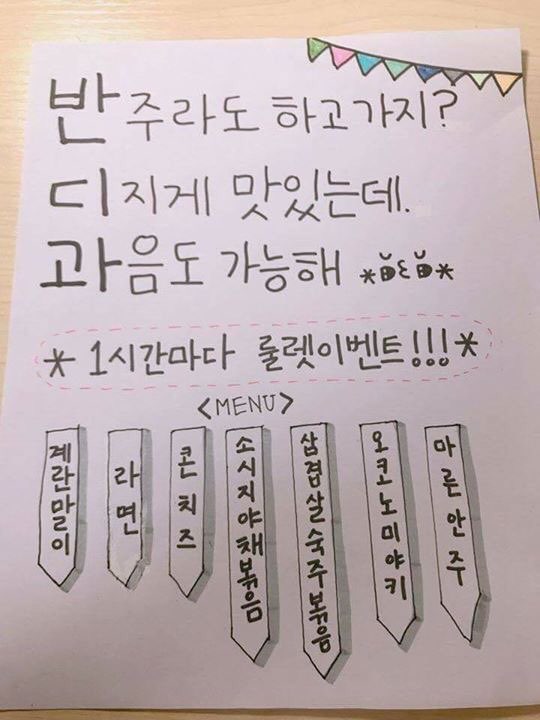 반주라도 하고가지?
디지게 맛있는데.
과음도 가능해
* 1시간마다 룰렛이벤트!!! *
<MENU>
계란말이
라면
콘치즈
소시지야채볶음
삼겹살숙주볶음
오코노미야키
마른안주